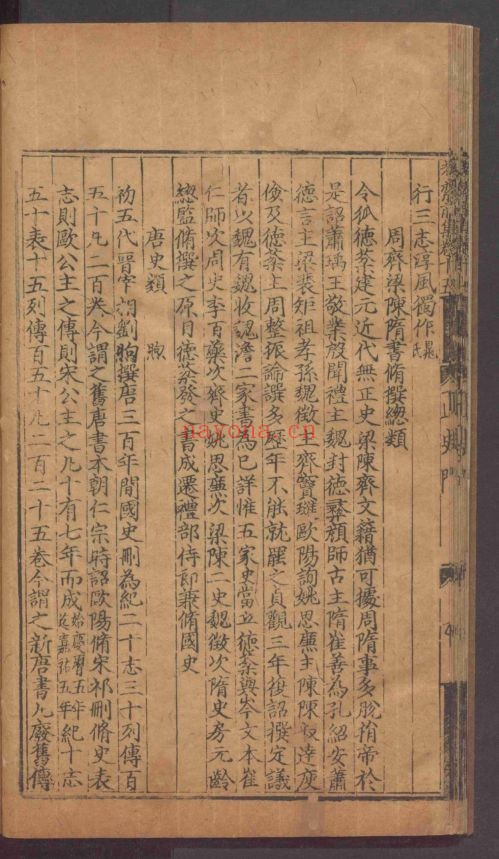 行三志淳風獨作晁氏
周齊梁陳隋書脩撰總類
令狐德棻建元近代無正史梁陳齊文籍猶可據周隋事多脫捎帝於
是詔蕭瑀王敬業殷聞禮主魏封德彝顏師古主隋崔善為孔紹安蕭
德言主梁裴矩祖孝孫魏徵主齊竇璡歐陽詢姚思廉主陳陳叔達庾
儉及德棻主周整振論譔多歷年不能就罷之貞觀三年復詔撰定議
者以魏有魏收魏澹二家書為已詳惟五家史當立德棻與岑文本崔
仁師次周史李百藥次齊史姚思廉次梁陳二史魏徵次隋史房元齡
總監脩撰之原自德棻發之書成遷禮部侍郎兼脩國史
唐史類 昫
初五代晉宰相劉昫撰唐三百年間國史刪為紀二十志三十列傳百
五十凡二百卷今謂之舊唐書本朝仁宗時詔歐陽脩宋祁刪脩史表
志則歐公主之傳則宋公主之凡十有七年而成始慶曆五年迄嘉祐五年紀十志
五十表十五列傳百五十凡二百二十五卷今謂之新唐書凡廢舊傳
正史門
nayona.cn